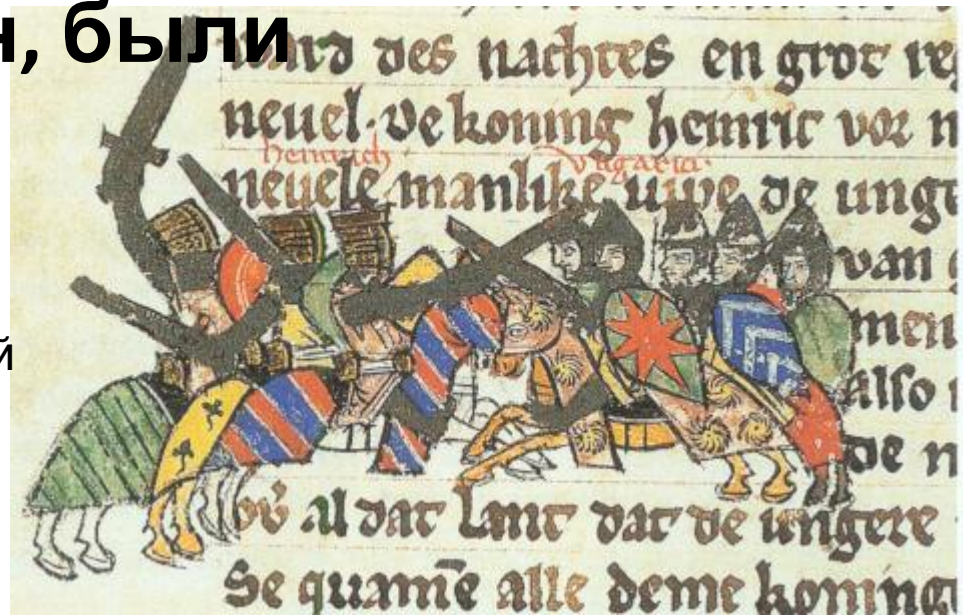 н, были
ward des nachtes en grot re
neuel. De koning heinric vor
heinrich vngaria.
neuele manlike uwe de unge
van
й
men
Also
de n
al dat lant dat de ungere
Se quamē alle deme koning